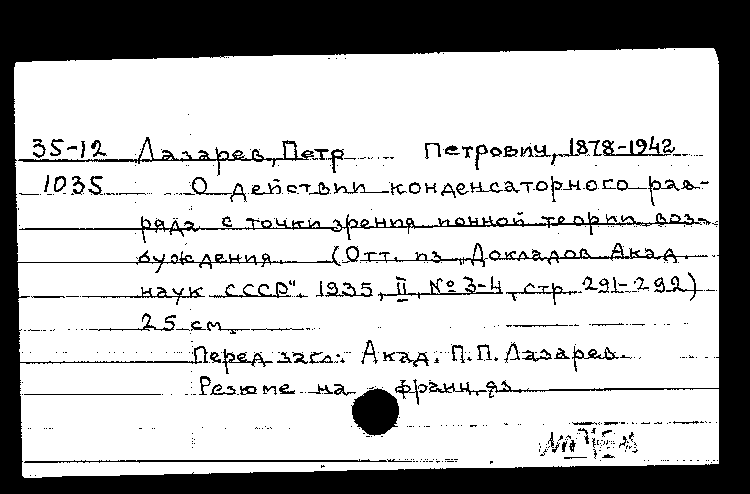 35-12 Лазарев, Петр Петрович, 1878-1942
1035 О действии конденсаторного раз-
ряда с точки зрения ионной теории воз-
буждения. (Отт. из „Докладов Акад.
наук СССР". 1935, II, № 3-4, стр. 291-292)
25 см.
Перед загл.: Акад. П.П. Лазарев.
Резюме на франц. яз.